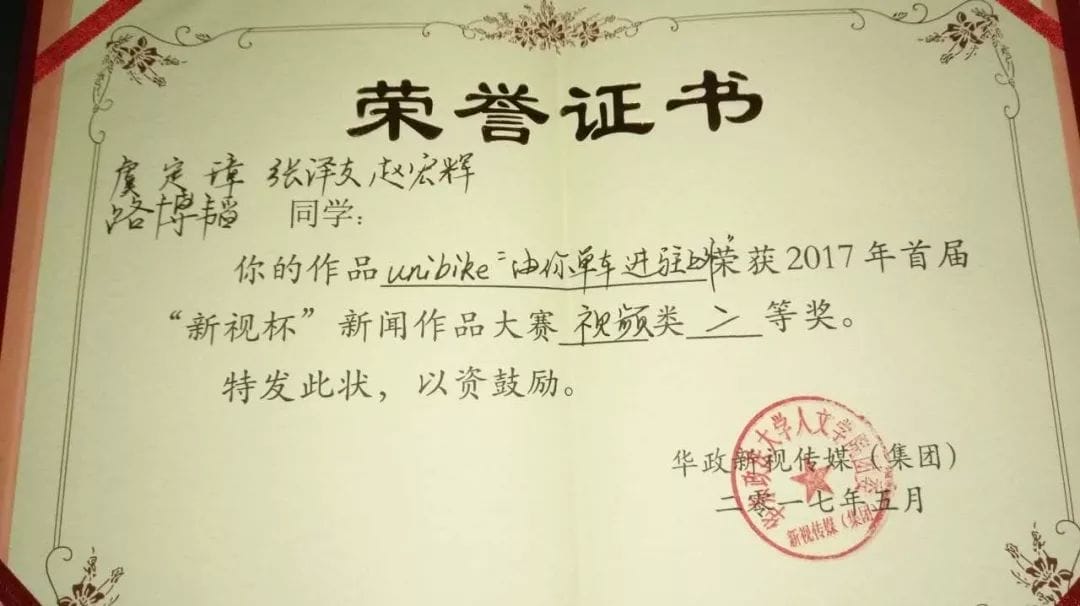 荣誉证书
虞定璋 张泽友 赵宏辉
路博韬 同学：
你的作品unibike“油你单车进驻”荣获2017年首届
“新视杯”新闻作品大赛 视频类 二 等奖。
特发此状，以资鼓励。
华政新视传媒（集团）
二零一七年五月
华东政法大学人文学院团委
新视传媒（集团）